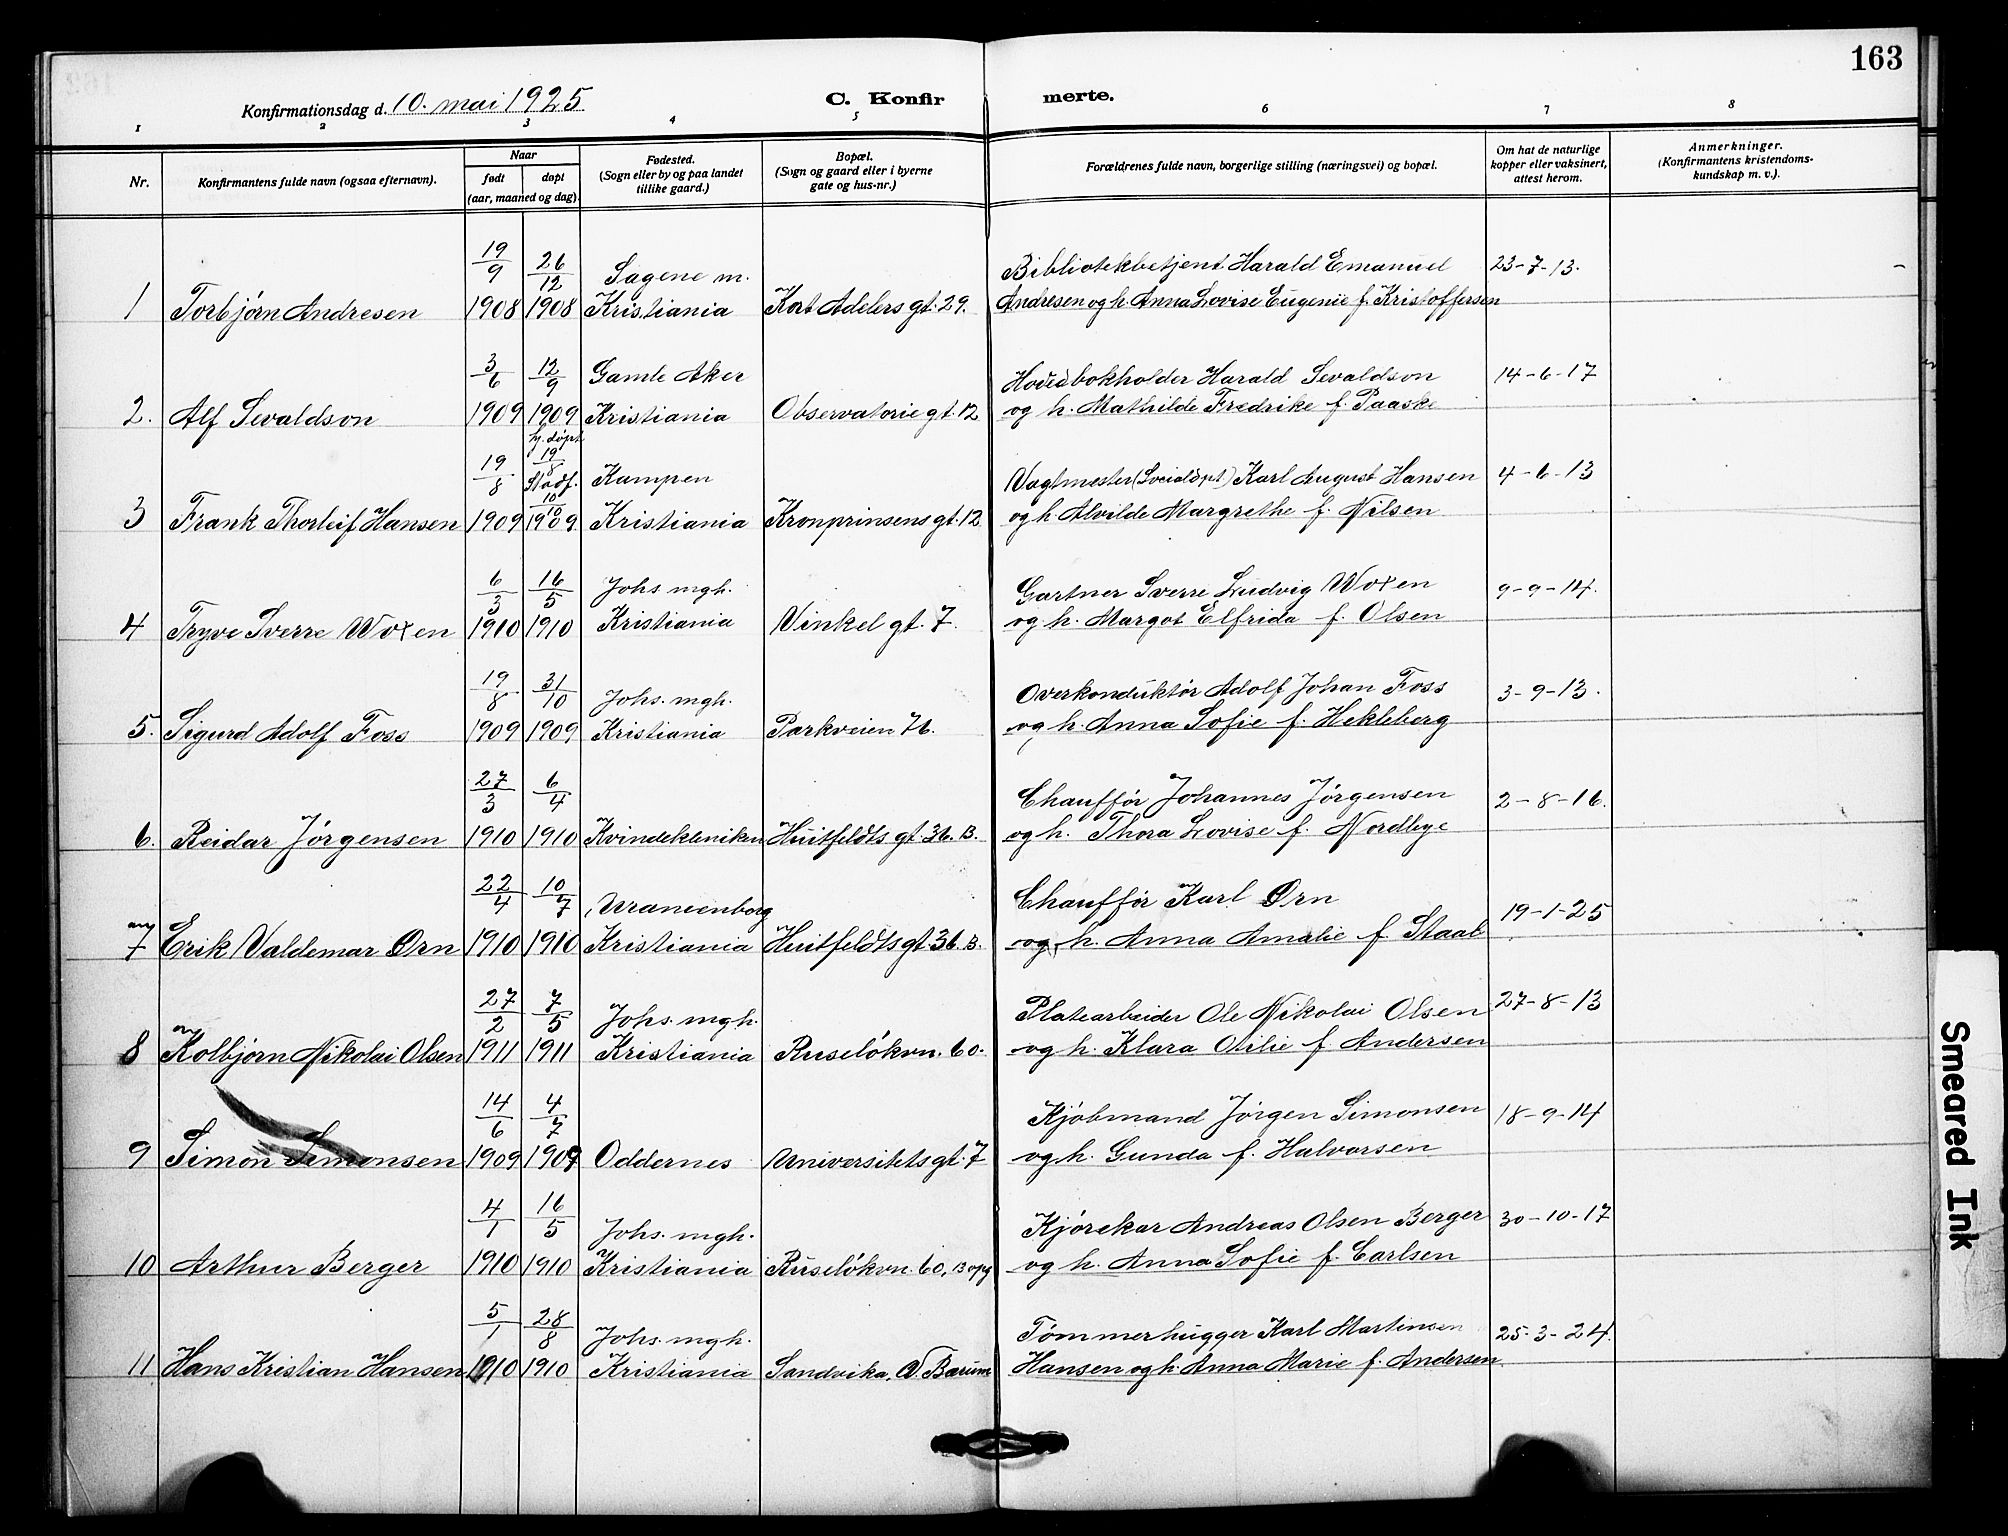 163
Konfirmationsdag d. 10. mai 1925
C. Konfir merte.
1 2 3 4 5 6 7 8
Nr.
Konfirmantens fulde navn (ogsaa efternavn).
Naar
født døpt
(aar, maaned og dag)
Fødested.
(Sogn eller by og paa landet
tillike gaard.)
Bopæl.
(Sogn og gaard eller i byerne
gate og hus-nr.)
Forældrenes fulde navn, borgerlige stilling (næringsvei) og bopæl.
Om hat de naturlige
kopper eller vaksinert,
attest herom.
Anmerkninger.
(Konfirmantens kristendoms-
kundskap m. v.).
19/9 26/12 Sagene m. Bibliotekbetjent Harald Emanuel 23-7-13.
1 Torbjørn Andresen 1908 1908 Kristiania Kort Adelers gt. 29. Andresen og h. Anna Lovise Eugenie f. Kristoffersen
3/6 12/9 Gamle Aker Hovedbokholder Harald Sevaldson 14-6-17
2. Alf Sevaldson 1909 1909 Kristiania Observatorie gt. 12 og h. Mathilde Fredrike f. Paaske
hj. døpt
19/8 19/8 Stadf. 10/10 Kampen Vagtmester (Socialdpt) Karl August Hansen 4-6-13
3 Frank Thorleif Hansen 1909 1909 Kristiania Kronprinsens gt. 12 og h. Alvilde Margrethe f. Nilsen
6/3 16/5 Johs. mgh. Gartner Sverre Ludvig Woxen 9-9-14.
4 Tryve Sverre Woxen 1910 1910 Kristiania Vinkel gt. 7. og h. Margot Elfrida f. Olsen
19/8 31/10 Johs. mgh. Overkonduktør Adolf Johan Foss 3-9-13.
5. Sigurd Adolf Foss 1909 1909 Kristiania Parkveien 76. og h. Anna Sofie f. Hekleberg
27/3 6/4 Chauffør Johannes Jørgensen 2-8-16.
6. Reidar Jørgensen 1910 1910 Kvindekliniken Huitfeldts gt. 36. B. og h. Thora Lovise f. Nordbye
22/4 10/7 Uranienborg Chauffør Karl Ørn 19-1-25
7 Erik Valdemar Ørn 1910 1910 Kristiania Huitfeldts gt. 36. B. og h. Anna Amalie f. Staal
27/2 7/5 Johs. mgh. Platearbeider Ole Nikolai Olsen 27-8-13
8 Kolbjørn Nikolai Olsen 1911 1911 Kristiania Ruseløkvn. 60. og h. Klara Otilie f. Andersen
14/6 4/7 Kjøbmand Jørgen Simonsen 18-9-14
9 Simon Simonsen 1909 1909 Oddernes Universitets gt. 7 og h. Gunda f. Halvorsen
4/1 16/5 Johs. mgh. Kjørekar Andreas Olsen Berger 30-10-17
10 Arthur Berger 1910 1910 Kristiania Ruseløkvn. 60, B opg og h. Anna Sofie f. Carlsen
5/1 28/8 Johs. mgh. Tømmerhugger Karl Martinsen 25-3-24.
11 Hans Kristian Hansen 1910 1910 Kristiania Sandvika, V. Bærum Hansen og h. Anna Marie f. Andersen
Smeared Ink